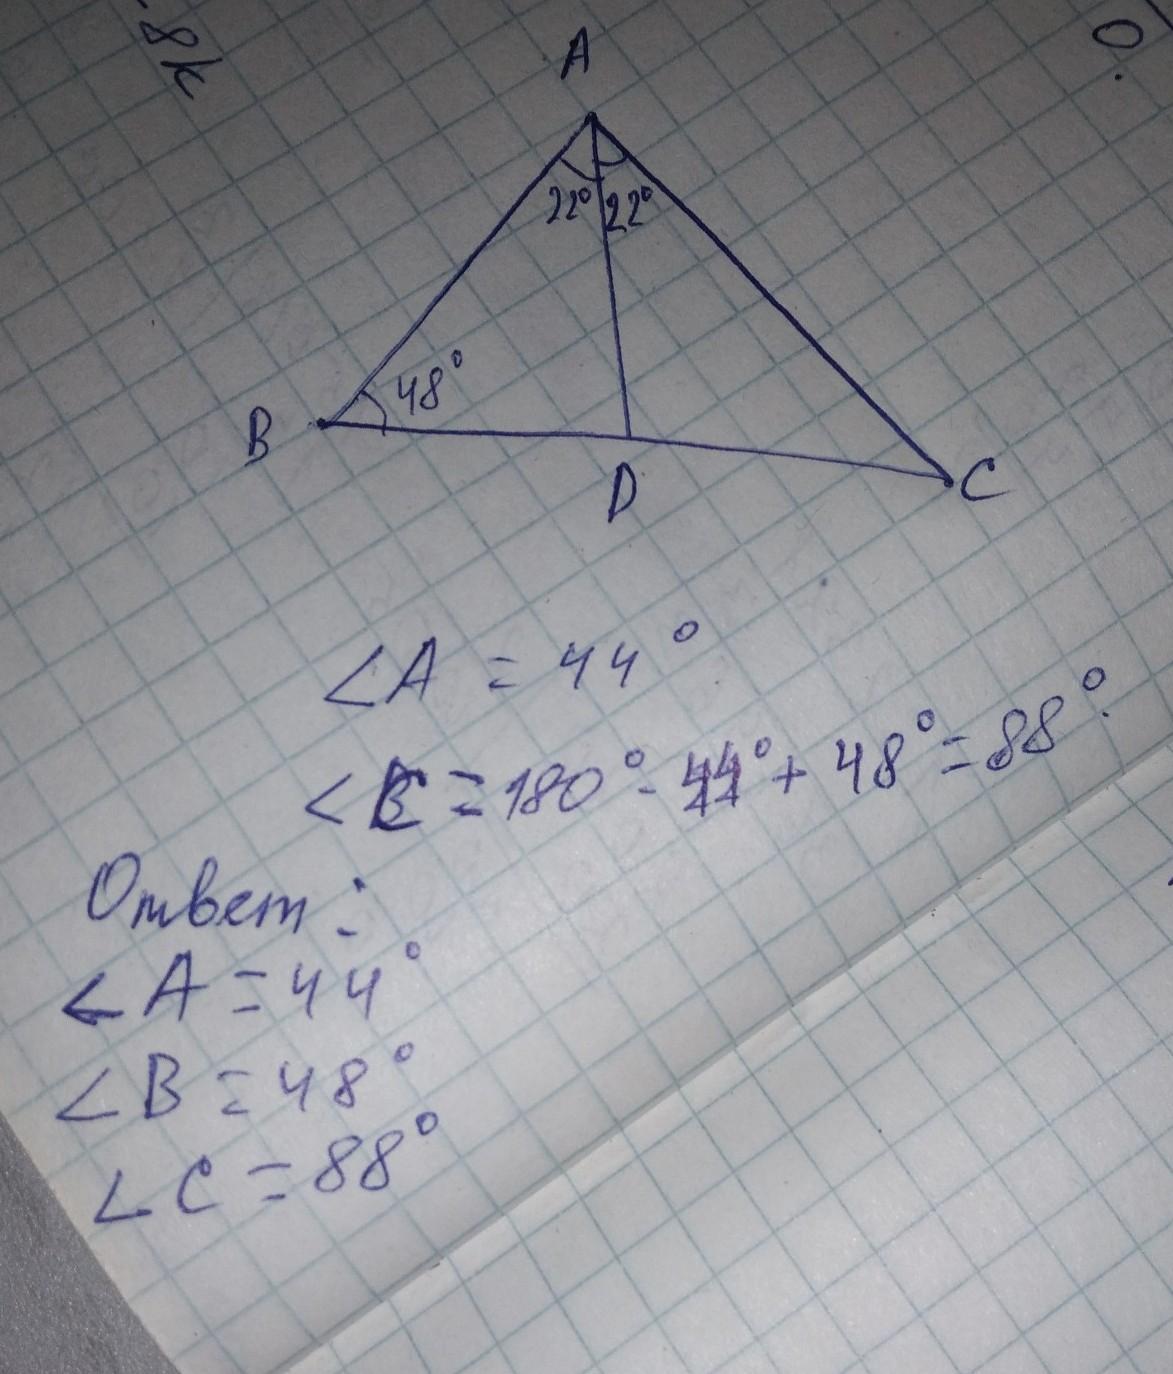 -8k
0.
A
22° 22°
48°
B
D
C
∠A = 44°
∠C = 180° - 44° + 48° = 88°.
Ответ:
∠A = 44°
∠B = 48°
∠C = 88°